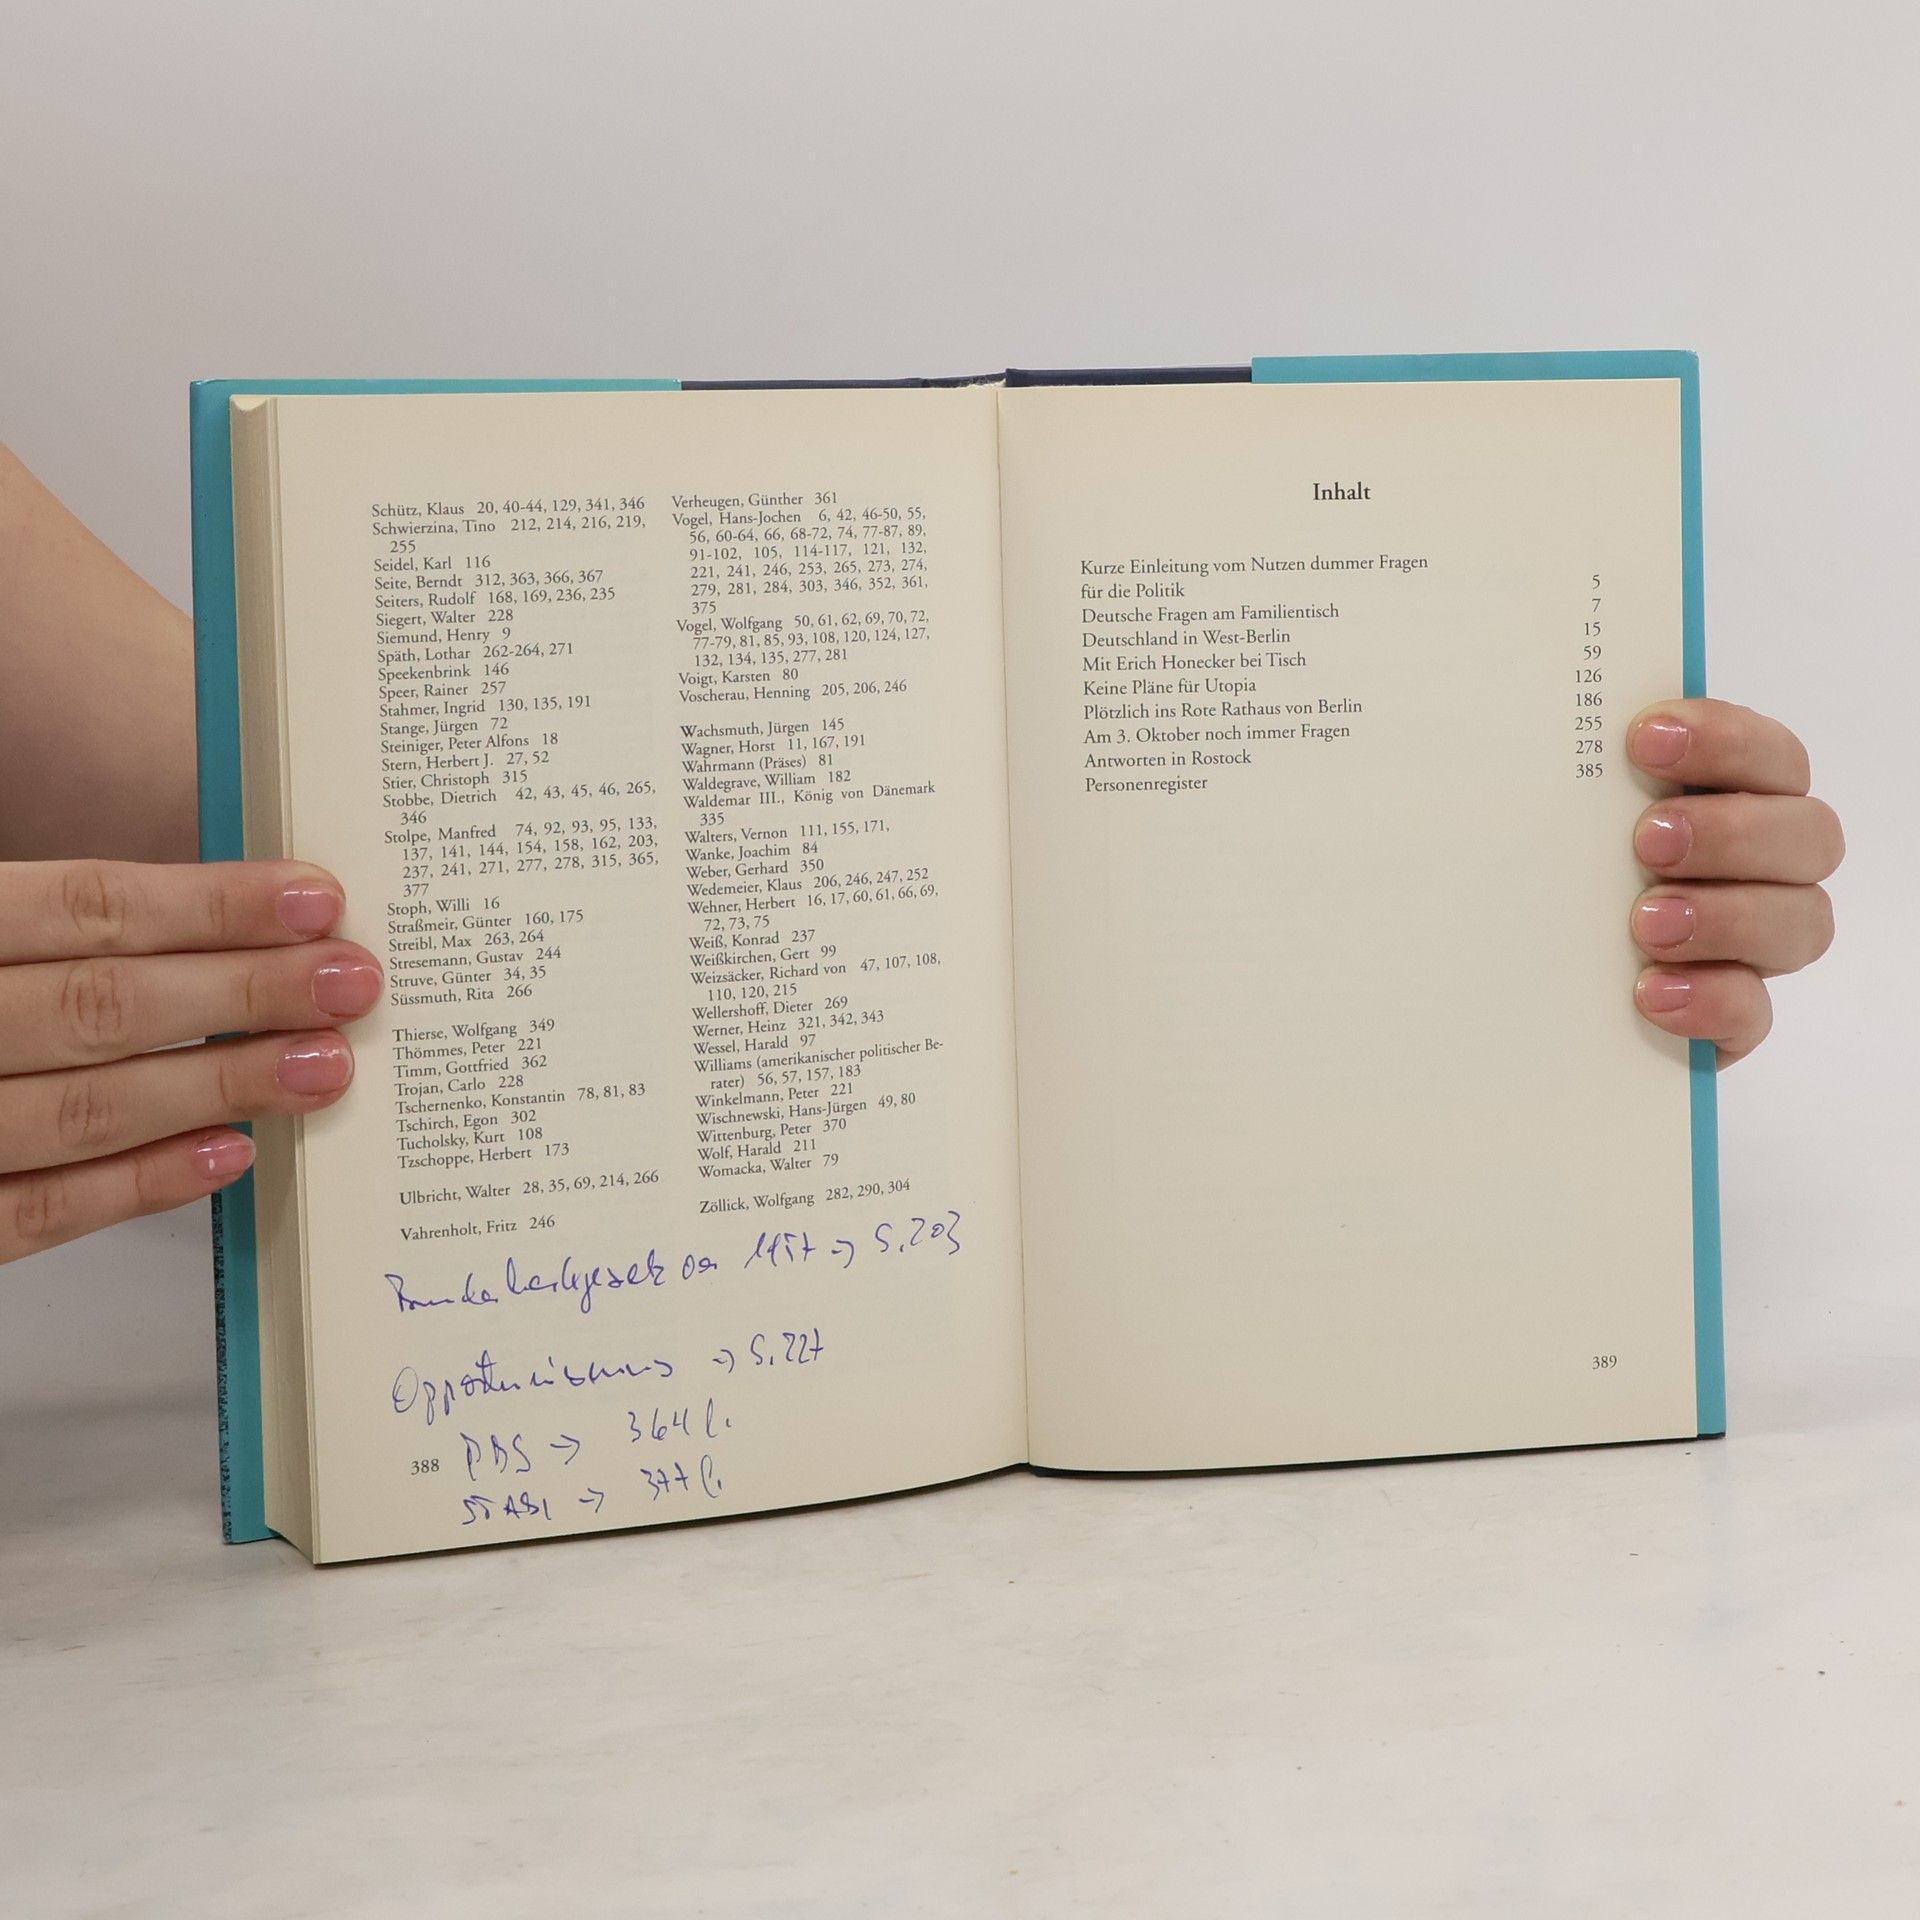 Schütz, Klaus 20, 40-44, 129, 341, 346
Schwierzina, Tino 212, 214, 216, 219,
255
Seidel, Karl 116
Seite, Berndt 312, 363, 366, 367
Seiters, Rudolf 168, 169, 236, 235
Siegert, Walter 228
Siemund, Henry 9
Späth, Lothar 262-264, 271
Speekenbrink 146
Speer, Rainer 257
Stahmer, Ingrid 130, 135, 191
Stange, Jürgen 72
Steiniger, Peter Alfons 18
Stern, Herbert J. 27, 52
Stier, Christoph 315
Stobbe, Dietrich 42, 43, 45, 46, 265,
346
Stolpe, Manfred 74, 92, 93, 95, 133,
137, 141, 144, 154, 158, 162, 203,
237, 241, 271, 277, 278, 315, 365,
377
Stoph, Willi 16
Straßmeir, Günter 160, 175
Streibl, Max 263, 264
Stresemann, Gustav 244
Struve, Günter 34, 35
Süssmuth, Rita 266
Thierse, Wolfgang 349
Thömmes, Peter 221
Timm, Gottfried 362
Trojan, Carlo 228
Tschernenko, Konstantin 78, 81, 83
Tschirch, Egon 302
Tucholsky, Kurt 108
Tzschoppe, Herbert 173
Ulbricht, Walter 28, 35, 69, 214, 266
Vahrenholt, Fritz 246
Verheugen, Günther 361
Vogel, Hans-Jochen 6, 42, 46-50, 55,
56, 60-64, 66, 68-72, 74, 77-87, 89,
91-102, 105, 114-117, 121, 132,
221, 241, 246, 253, 265, 273, 274,
279, 281, 284, 303, 346, 352, 361,
375
Vogel, Wolfgang 50, 61, 62, 69, 70, 72,
77-79, 81, 85, 93, 108, 120, 124, 127,
132, 134, 135, 277, 281
Voigt, Karsten 80
Voscherau, Henning 205, 206, 246
Wachsmuth, Jürgen 145
Wagner, Horst 11, 167, 191
Wahrmann (Präses) 81
Waldegrave, William 182
Waldemar III., König von Dänemark
335
Walters, Vernon 111, 155, 171,
Wanke, Joachim 84
Weber, Gerhard 350
Wedemeier, Klaus 206, 246, 247, 252
Wehner, Herbert 16, 17, 60, 61, 66, 69,
72, 73, 75
Weiß, Konrad 237
Weißkirchen, Gert 99
Weizsäcker, Richard von 47, 107, 108,
110, 120, 215
Wellershoff, Dieter 269
Werner, Heinz 321, 342, 343
Wessel, Harald 97
Williams (amerikanischer politischer Be-
rater) 56, 57, 157, 183
Winkelmann, Peter 221
Wischnewski, Hans-Jürgen 49, 80
Wittenburg, Peter 370
Wolf, Harald 211
Womacka, Walter 79
Zöllick, Wolfgang 282, 290, 304
→ S. 203
Opportunismus → S. 227
PDS → 364 f.
STASI → 377 f.
388
Inhalt
Kurze Einleitung vom Nutzen dummer Fragen
für die Politik 5
Deutsche Fragen am Familientisch 7
Deutschland in West-Berlin 15
Mit Erich Honecker bei Tisch 59
Keine Pläne für Utopia 126
Plötzlich ins Rote Rathaus von Berlin 186
Am 3. Oktober noch immer Fragen 255
Antworten in Rostock 278
Personenregister 385
389